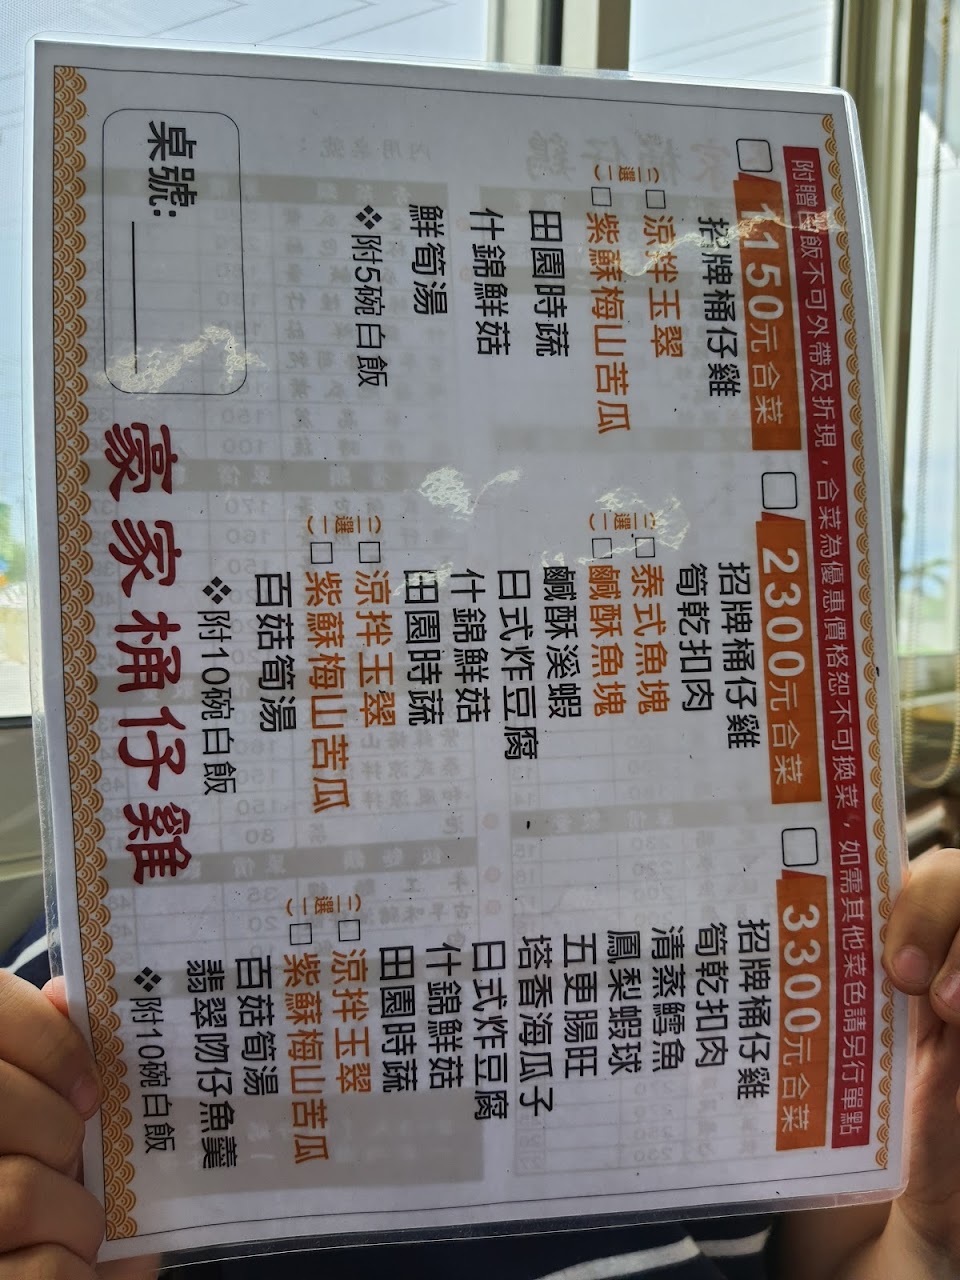 附贈白飯不可外帶及折現，合菜為優惠價格恕不可換菜，如需其他菜色請另行單點
□ 1150元 合菜
招牌桶仔雞
(二選一)
□涼拌玉翠
□紫蘇梅山苦瓜
田園時蔬
什錦鮮菇
鮮筍湯
❖附5碗白飯
□ 2300元 合菜
招牌桶仔雞
筍乾扣肉
(二選一)
□泰式魚塊
□鹹酥魚塊
鹹酥溪蝦
日式炸豆腐
什錦鮮菇
田園時蔬
(二選一)
□涼拌玉翠
□紫蘇梅山苦瓜
百菇筍湯
❖附10碗白飯
□ 3300元 合菜
招牌桶仔雞
筍乾扣肉
清蒸鱈魚
鳳梨蝦球
五更腸旺
塔香海瓜子
日式炸豆腐
什錦鮮菇
田園時蔬
(二選一)
□涼拌玉翠
□紫蘇梅山苦瓜
百菇筍湯
翡翠吻仔魚羹
❖附10碗白飯
桌號:
豪家桶仔雞